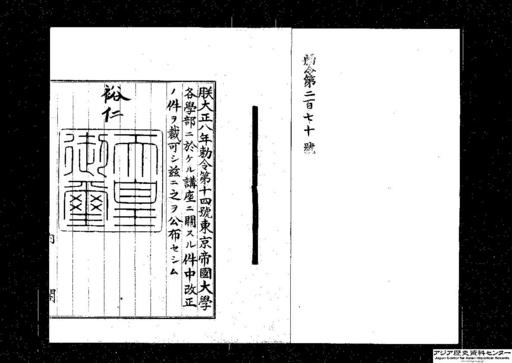 勅令第二百七十號
朕大正八年勅令第十四號東京帝國大學
各學部ニ於ケル講座ニ關スル件中改正
ノ件ヲ裁可シ玆ニ之ヲ公布セシム
裕仁
天皇
御璽
内閣
アジア歴史資料センター
Japan Center for Asian Historical Records